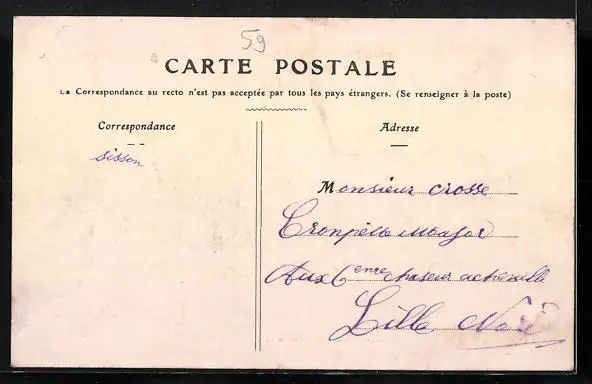 59
CARTE POSTALE
La Correspondance au recto n'est pas acceptée par tous les pays étrangers. (Se renseigner à la poste)
Correspondance
Adresse
sisson
Monsieur crosse
Tronpette Major
Aux 6enme chaseur achevalle
Lille Nord